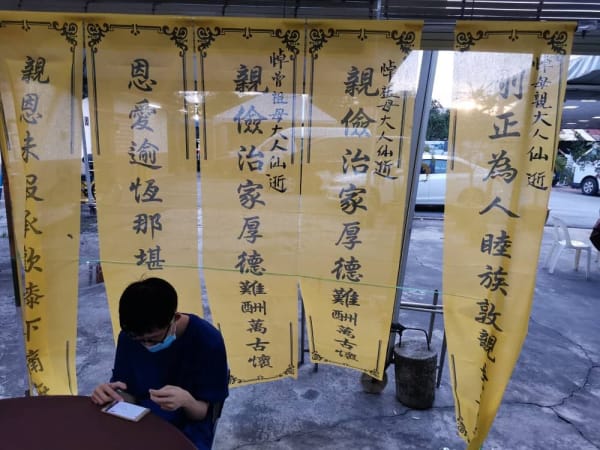 悼母親大人仙逝
正為人睦族敦親
悼祖母大人仙逝
親儉治家厚德難酬萬古懷
祖母大人仙逝
親儉治家厚德難酬萬古懷
恩愛逾恆那堪
親恩未报承欢下